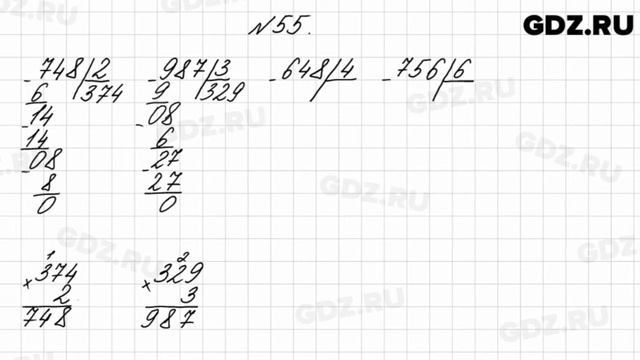 GDZ.RU
№55.
- 748 | 2
6 374
- 14
14
- 08
8
0
- 987 | 3
9 329
- 08
6
- 27
27
0
- 648 | 4
- 756 | 6
1
× 374
2
748
2
× 329
3
987
GDZ.RU
GDZ.RU
GDZ.RU
GDZ.RU
GDZ.RU
GDZ.RU
GDZ.RU
GDZ.RU